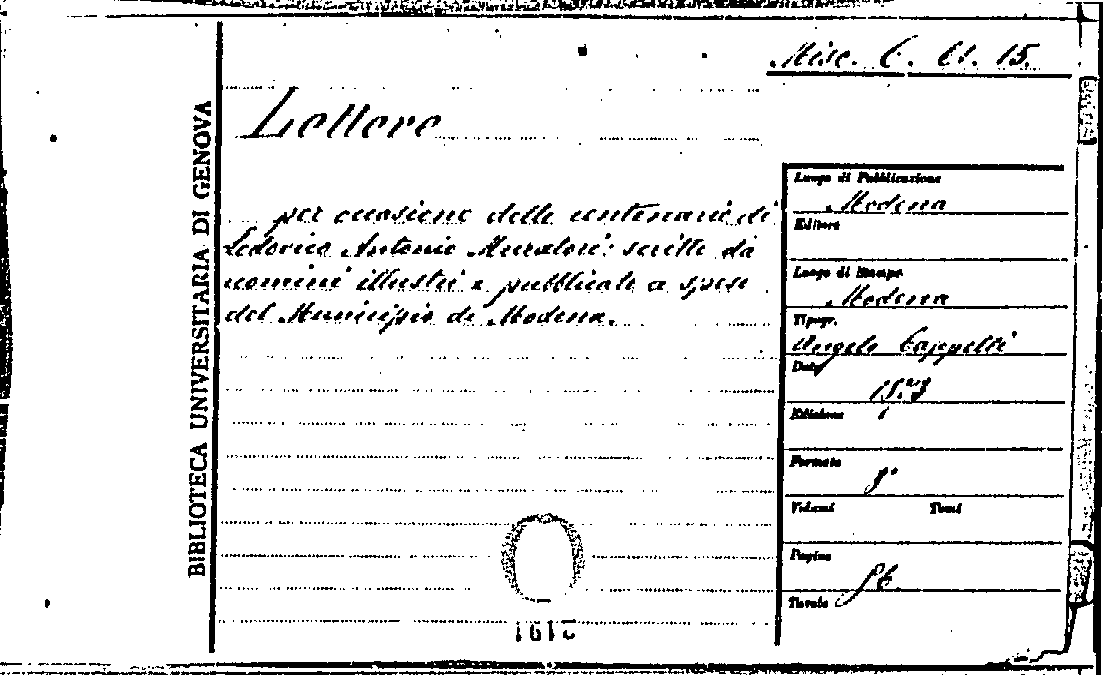 Misc. C. 61. 15.
Lettere
per occasione delle centenarie di
Lodovico Antonio Muratori: scritte da
uomini illustri e pubblicate a spese
del Municipio di Modena.
BIBLIOTECA UNIVERSITARIA DI GENOVA
Luogo di Pubblicazione
Modena
Editore
Luogo di Stampa
Modena
Tipogr.
Angelo Cappelli
Data
Edizione
Formato
8°
Volumi Tomi
Pagine
Tavole